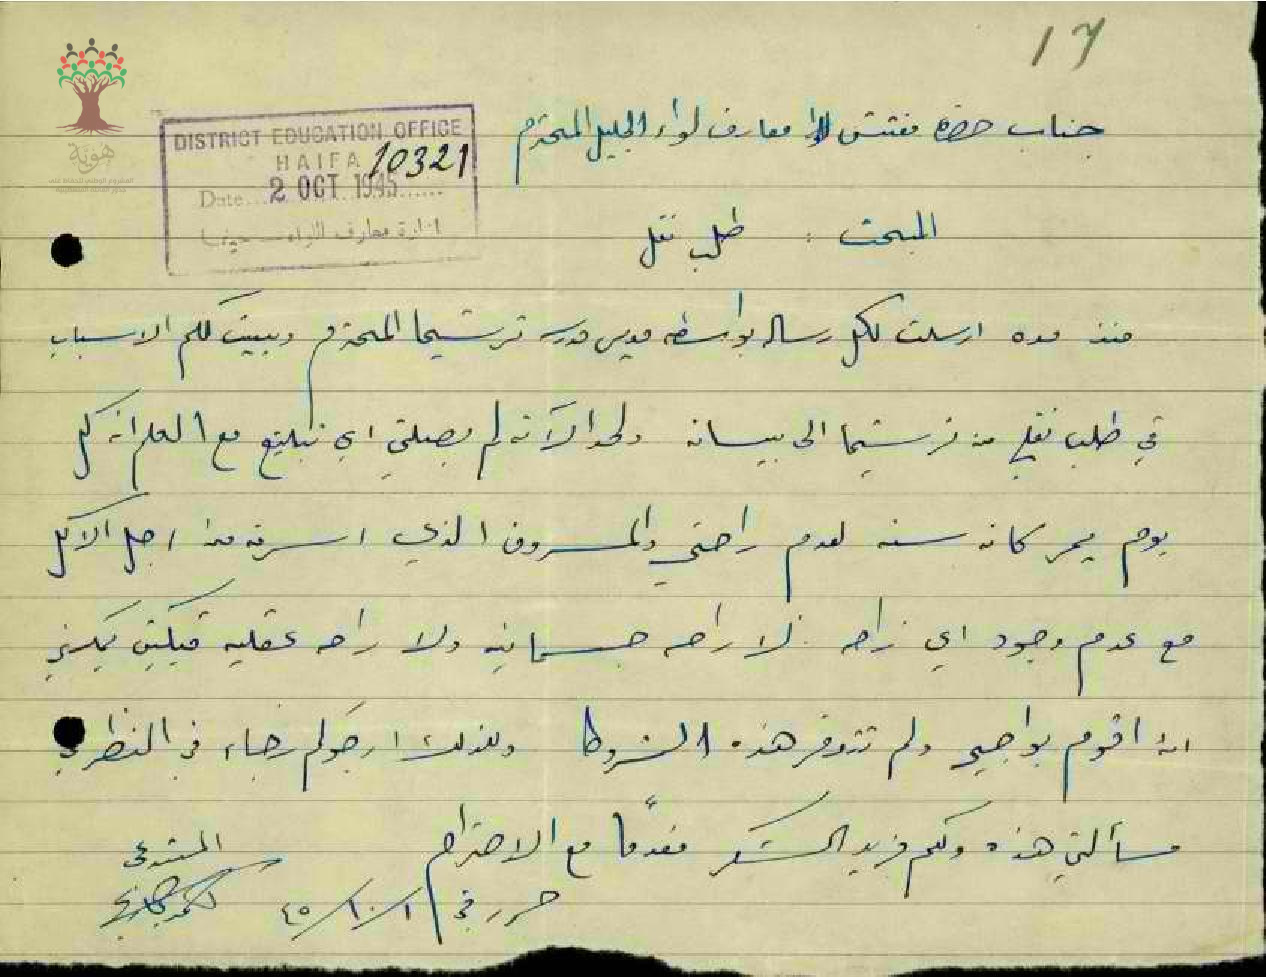 17
جناب حضرة مفتش معارف لواء الجليل المحترم
DISTRICT EDUCATION OFFICE
HAIFA
10321
Date 2 OCT 1945
ادارة معارف اللواء حيفا
هوية
المبحث : طلب نقل
منذ مده ارسلت لكم رساله بواسطه مدير مدرسه ترشيحا المحترم وبينت لكم الاسباب
في طلب نقلي من ترشيحا الى بيسان ولحد الآن لم يصلني اي تبليغ مع العلم انه كل
يوم يمر كانه سنه لعدم راحتي والمصروف الذي اصرفه من اجل الاكل
مع عدم وجود اي راحه لا راحه جسمانيه ولا راحه عقليه فكيف يمكنني
ان اقوم بواجبي ولم تتوفر هذه الشروط ولذلك ارجوكم رجاء في النظر في
مسألتي هذه ولكم مزيد الشكر مقدماً مع الاحترام
المستدعي
حرر في ١/١٠/٤٥